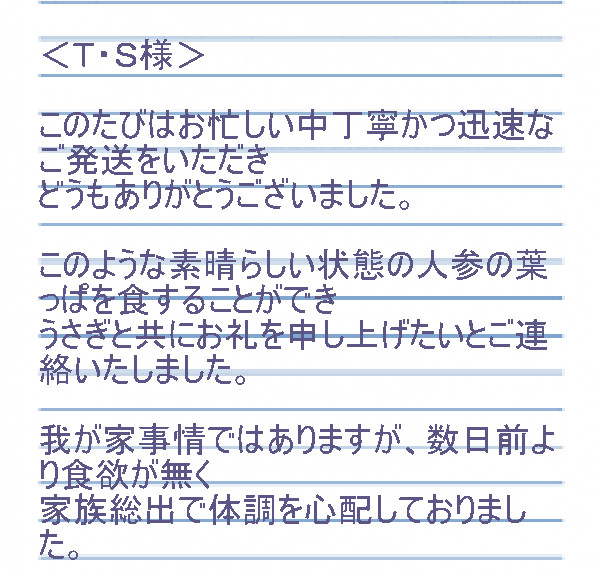 ＜T・S様＞
このたびはお忙しい中丁寧かつ迅速な
ご発送をいただき
どうもありがとうございました。
このような素晴らしい状態の人参の葉
っぱを食することができ
うさぎと共にお礼を申し上げたいとご連
絡いたしました。
我が家事情ではありますが、数日前よ
り食欲が無く
家族総出で体調を心配しておりまし
た。